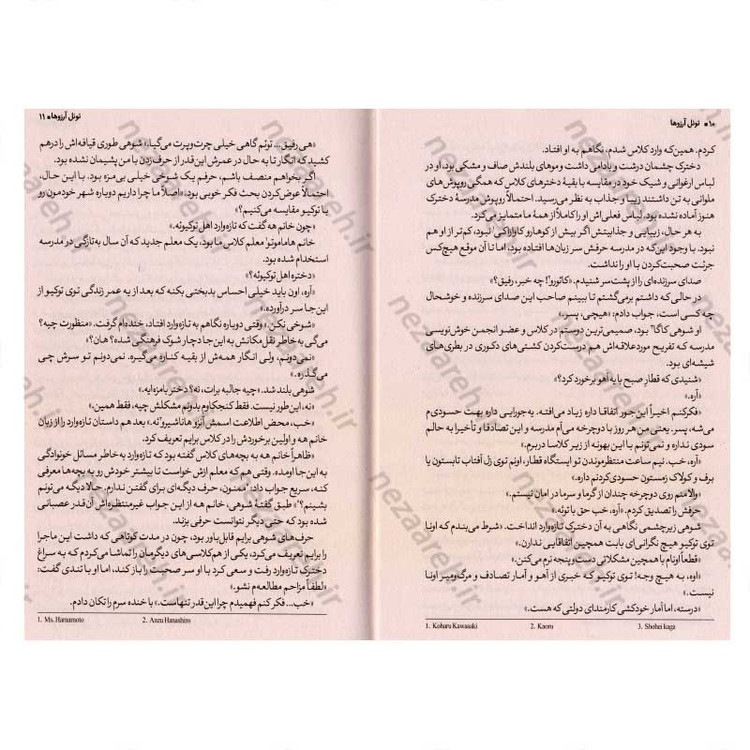 ۱۰ • تونل آرزوها
کردم. همین‌که وارد کلاس شدم، نگاهم به او افتاد.
دخترک چشمان درشت و بادامی داشت و موهای بلندش صاف و مشکی بود. او در
لباس ارغوانی و شیک خود در مقایسه با بقیهٔ دخترهای کلاس که همگی روپوش‌های
ملوانی به تن داشتند زیبا و جذاب به نظر می‌رسید. احتمالاً روپوش مدرسهٔ دخترک
هنوز آماده نشده بود. لباس فعلی‌اش او را کاملاً از همهٔ ما متمایز می‌کرد.
به هر حال، زیبایی و جذابیتش اگر بیش از کوهارو کاوازاکی¹ نبود، کم‌تر از او هم
نبود. با وجود این‌که در مدرسه حرفش سر زبان‌ها افتاده بود، اما تا آن موقع هیچ‌کس
جرئت صحبت‌کردن با او را نداشت.
صدای سرزنده‌ای را از پشت‌سر شنیدم. «کائورو²! چه خبر، رفیق؟»
در حالی که داشتم برمی‌گشتم تا ببینم صاحب این صدای سرزنده و خوشحال
چه کسی است، جواب دادم: «هیچی، پسر.»
او شوهی کاگا³ بود، صمیمی‌ترین دوستم در کلاس و عضو انجمن خوش‌نویسی
مدرسه که تفریح موردعلاقه‌اش هم درست‌کردن کشتی‌های دکوری در بطری‌های
شیشه‌ای بود.
«شنیدی که قطار صبح با یه آهو برخورد کرد؟»
«آره.»
«فکر کنم اخیراً این‌جور اتفاقا داره زیاد می‌افته. یه‌جورایی داره بهت حسودی‌م
می‌شه، پسر. یعنی من هر روز با دوچرخه می‌آم مدرسه و این تصادفا و تأخیرا به حالم
سودی نداره و نمی‌تونم با این بهونه از زیر کلاسا دربرم.»
«آره، خب. نیم ساعت منتظرموندن تو ایستگاه قطار، اونم توی زل آفتاب تابستون یا
برف و کولاک زمستون حسودی‌کردنم داره.»
«والا منم روی دوچرخه چندان از گرما و سرما در امان نیستم.»
حرفش را تصدیق کردم. «آره، خب حق با توئه.»
شوهی زیرچشمی نگاهی به آن دخترک تازه‌وارد انداخت. «شرط می‌بندم که اونا
توی توکیو هیچ نگرانی‌ای بابت همچین اتفاقایی ندارن.»
«قطعاً اونام با همچین مشکلاتی دست‌وپنجه نرم می‌کنن.»
«اوه، به هیچ وجه! توی توکیو که خبری از آهو و آمار تصادف و مرگ‌ومیر اونا
نیست.»
«درسته، اما آمار خودکشی کارمندای دولتی که هست.»
1. Koharu Kawasaki 2. Kaoru 3. Shohei kaga
تونل آرزوها • ۱۱
«هی رفیق... تونم گاهی خیلی چرت‌وپرت می‌گیا.» شوهی طوری قیافه‌اش را درهم
کشید که انگار تا به حال در عمرش این‌قدر از حرف‌زدن با من پشیمان نشده بود.
اگر بخواهم منصف باشم، حرفم یک شوخی خیلی بی‌مزه بود. با این حال،
احتمالاً عوض‌کردن بحث فکر خوبی بود. «اصلاً ما چرا داریم دوباره شهر خودمون رو
با توکیو مقایسه می‌کنیم؟»
«چون خانم هه گفت که تازه‌وارد اهل توکیوئه.»
خانم هاماموتو¹ معلم کلاس ما بود، یک معلم جدید که آن سال به‌تازگی در مدرسه
استخدام شده بود.
«دختره اهل توکیوئه؟»
«آره، اون باید خیلی احساس بدبختی بکنه که بعد از یه عمر زندگی توی توکیو از
این‌جا سر درآورده.»
«شوخی نکن.» وقتی دوباره نگاهم به تازه‌وارد افتاد، خنده‌ام گرفت. «منظورت چیه؟
می‌گی به خاطر نقل‌مکانش به این‌جا دچار شوک فرهنگی شده؟ هان؟»
«نمی‌دونم، ولی انگار همه‌ش از بقیه کناره می‌گیره. نمی‌دونم تو سرش چی
می‌گذره.»
شوهی بلند شد. «چیه جالبه برات، نه؟ دختر بامزه‌ایه.»
«نه، این‌طور نیست. فقط کنجکاوم بدونم مشکلش چیه، فقط همین.»
«خب، محض اطلاعت اسمش آنزو هاناشیرو²ئه.» بعد هم داستان تازه‌وارد را از زبان
خانم هه و اولین برخوردش را در کلاس برایم تعریف کرد.
«ظاهراً خانم هه به بچه‌های کلاس گفته بود که تازه‌وارد به‌خاطر مسائل خونوادگی
به این‌جا اومده. وقتی هم که معلم ازش خواست تا بیشتر خودش رو به بچه‌ها معرفی
کنه، سریع جواب داد: "ممنون، حرف دیگه‌ای برای گفتن ندارم. حالا دیگه می‌تونم
بشینم؟"» طبق گفتهٔ شوهی، خانم هه از این جواب غیرمنتظره‌اش آن قدر عصبانی
شده بود که حتی دیگر نتوانست حرفی بزند.
حرف‌های شوهی برایم قابل‌باور بود، چون در مدت کوتاهی که داشت این ماجرا
را برایم تعریف می‌کرد، یکی از هم‌کلاسی‌های دیگرمان را تماشا می‌کردم که به سراغ
دخترک تازه‌وارد رفت و سعی کرد با او سر صحبت را باز کند، اما او با تندی گفت:
«لطفاً مزاحم مطالعه‌م نشو.»
«خب... فکر کنم فهمیدم چرا این‌قدر تنهاست.» با خنده سرم را تکان دادم.
1. Ms. Hamamoto 2. Anzu Hanashiro
nezaareh.ir